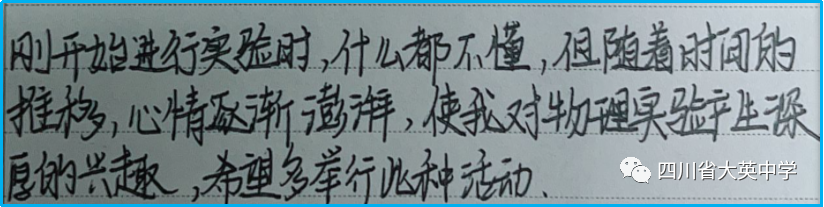 刚开始进行实验时,什么都不懂,但随着时间的
推移,心情逐渐澎湃,使我对物理实验产生深
厚的兴趣,希望多举行此种活动、
四川省大英中学